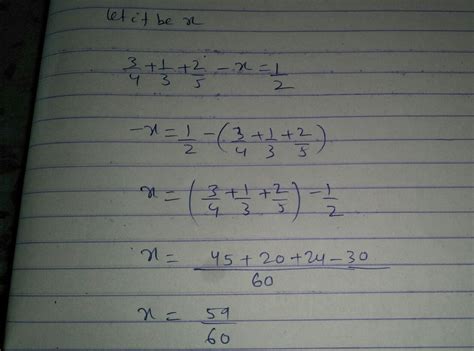 let it be x
3/4 + 1/3 + 2/5 - x = 1/2
-x = 1/2 - (3/4 + 1/3 + 2/5)
x = (3/4 + 1/3 + 2/5) - 1/2
x = 45 + 20 + 24 - 30 / 60
x = 59/60